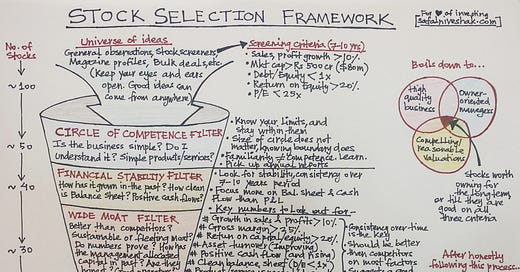 STOCK SELECTION FRAMEWORK
For ♥ of investing
[safalniveshak.com]
No. of
Stocks
~100
~ 50
~ 40
~ 30
Universe of ideas
General observations, Stock screeners,
Magazine profiles, Bulk deals, etc.
(Keep your eyes and ears
open. Good ideas can
come from anywhere)
Screening criteria (7-10 yrs)
• Sales, profit growth >10%
• Mkt cap > Rs 500 cr ($80m)
• Debt/Equity < 1x
• Return on Equity > 20%
• P/E < 25x
Boils down to...
High quality business
Owner-oriented managers
Compelling/reasonable valuations
Stocks worth
owning for
the long term
or till they are
good on all
three criteria
CIRCLE OF COMPETENCE FILTER
Is the business simple? Do I
Understand it? Simple products/services?
• Know your limits, and
stay within them
• Size of circle does not
matter, knowing boundary does
• Familiarity ≠ Competence. Learn.
• Pick up annual reports
FINANCIAL STABILITY FILTER
How has it grown in the past? How clean
is Balance Sheet? Positive cash flows?
• Look for stability, consistency over
7-10 years period
• Focus more on Bal Sheet & Cash
Flow than P&L
• Key numbers to look out for-
WIDE MOAT FILTER
Better than competitors?
Sustainable or fleeting moat?
Do numbers prove? How has
the management allocated
capital in past? Are they
# Growth in sales & profits > 10%
# Gross margin > 35%
# Return on capital/equity > 20%
# Asset turnover (improving)
# Positive cash flow (and rising)
# Clean balance sheet (D/E < 1x)
• Consistency over-time
is the key
• Should be better
than competitors
on most factors
After honestly
following this process...